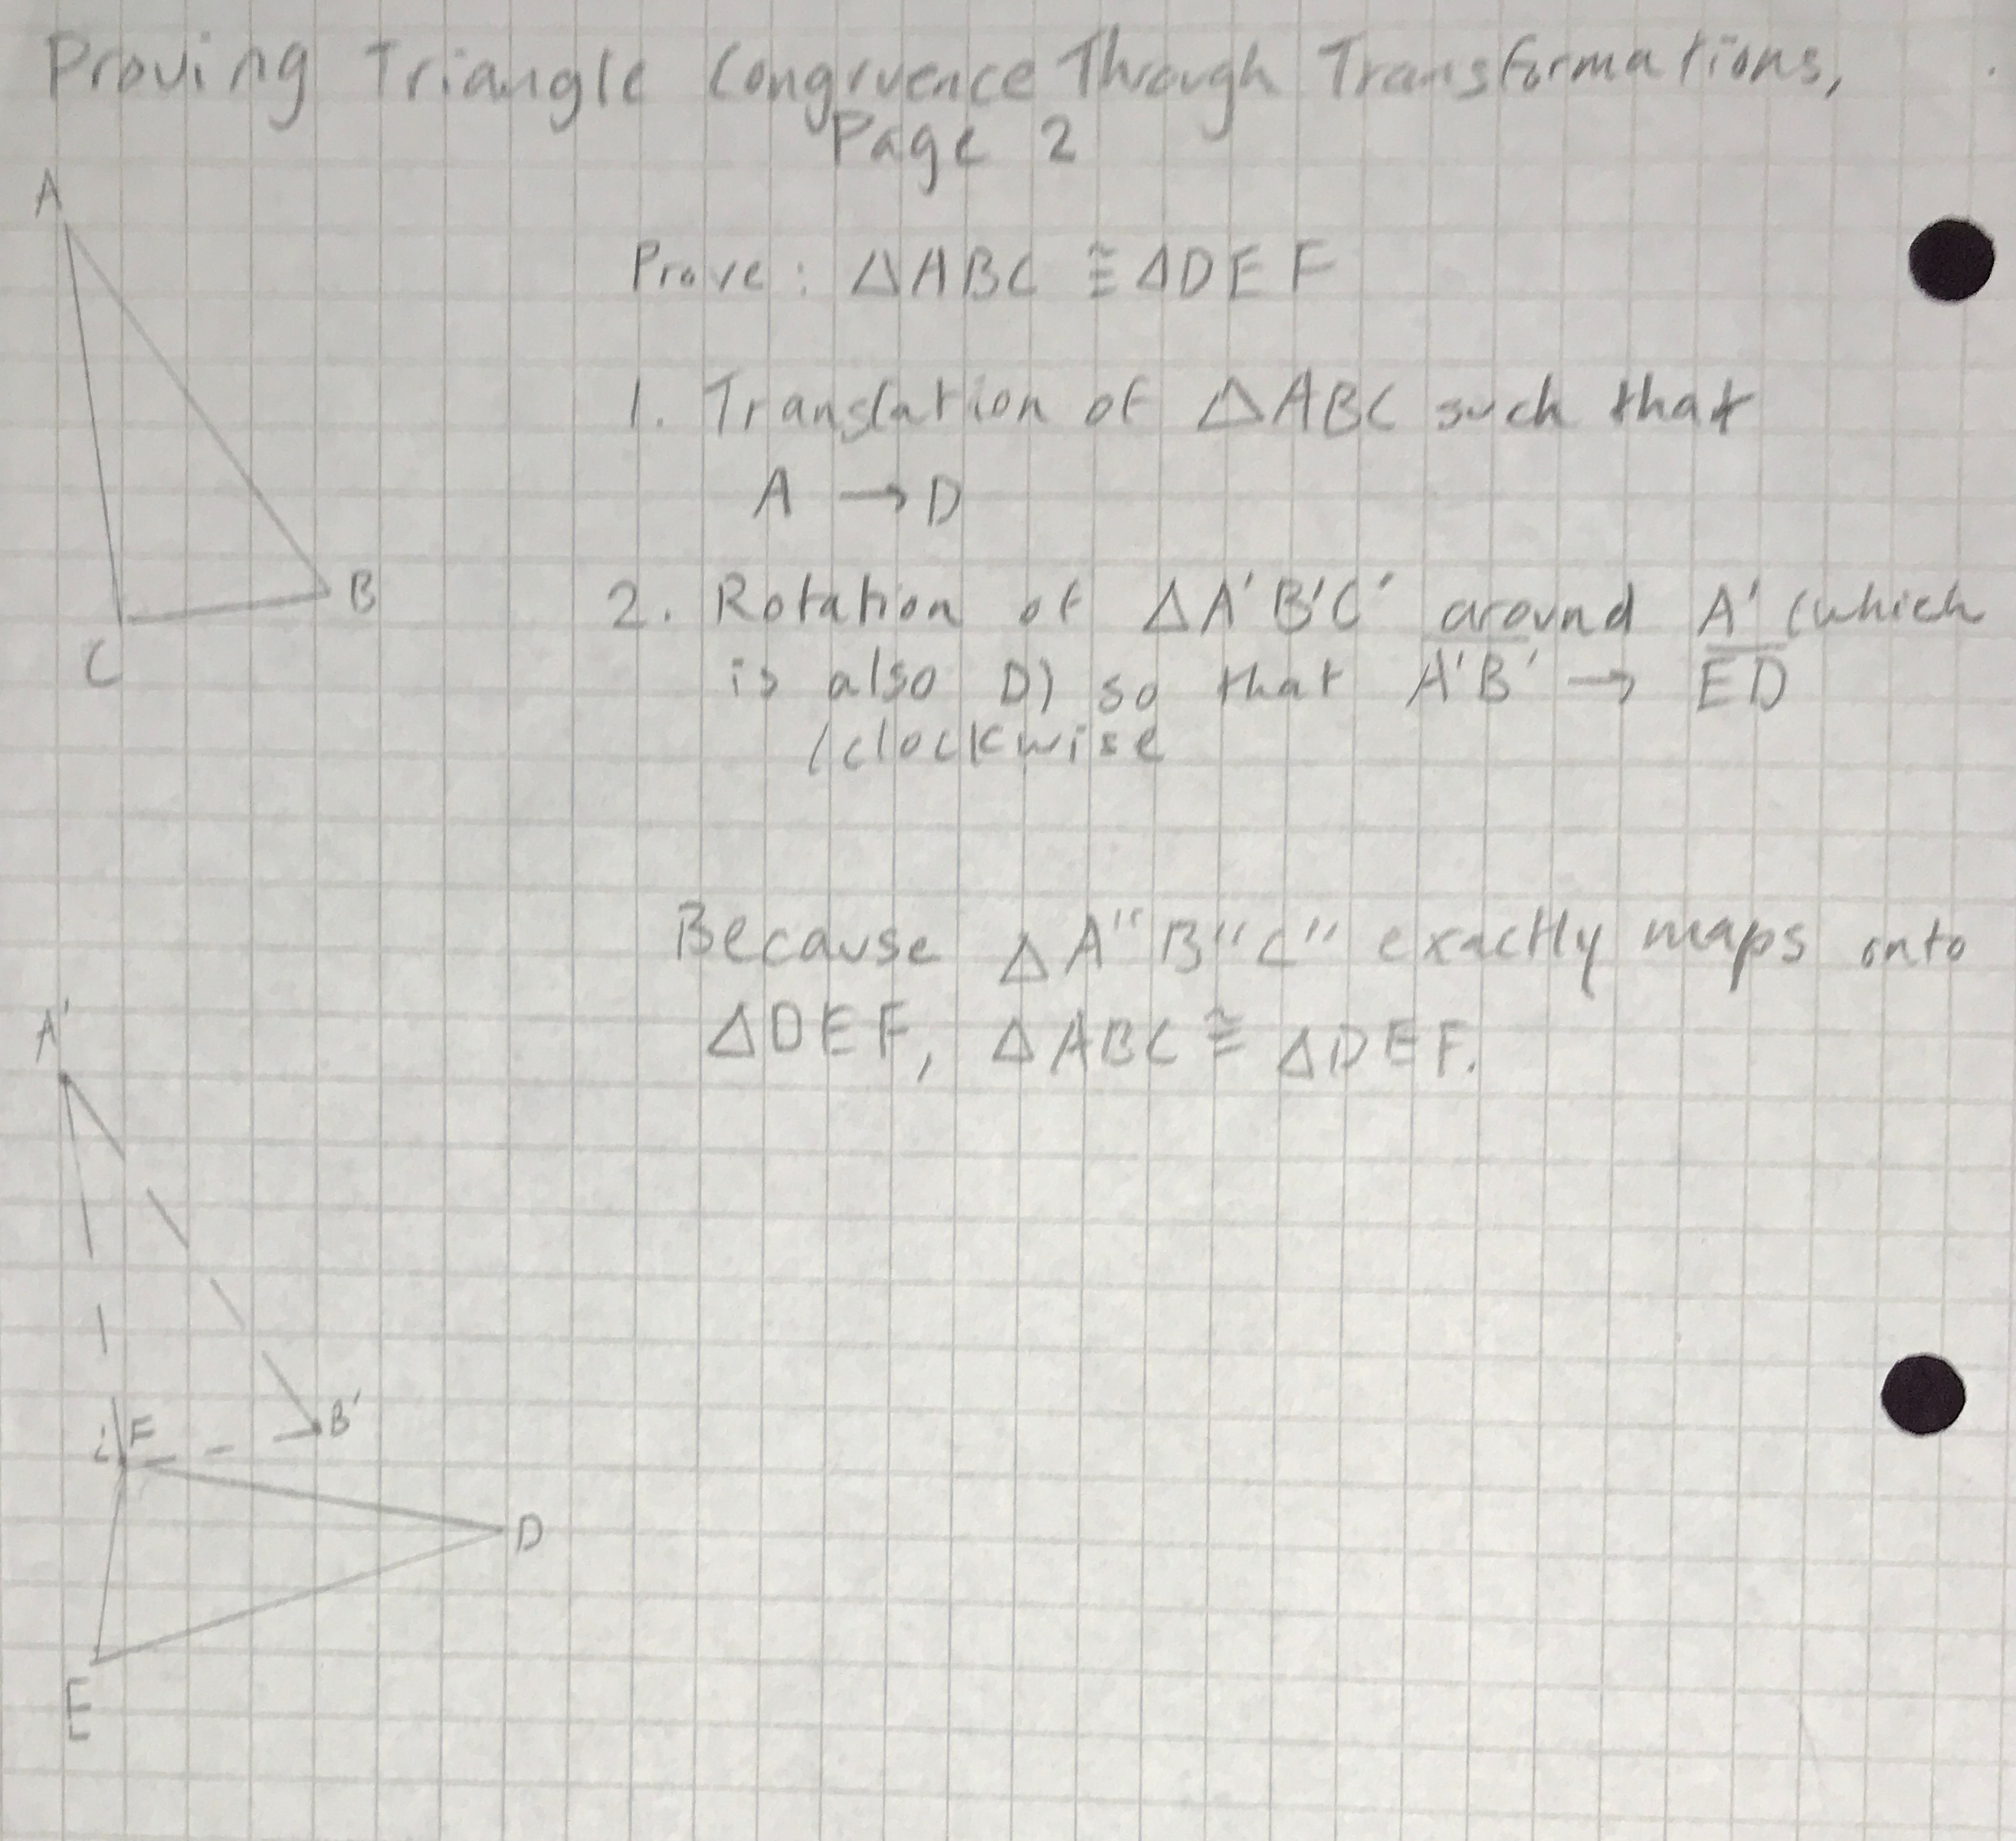 Proving Triangle Congruence Through Transformations,
Page 2
A
Prove: △ABC ≅ △DEF
1. Translation of △ABC such that
A → D
2. Rotation of △A'B'C' around A' (which
is also D) so that A'B' → ED
(clockwise
B
C
Because △A"B"C" exactly maps onto
△DEF, △ABC ≅ △DEF.
A'
F
B'
D
E